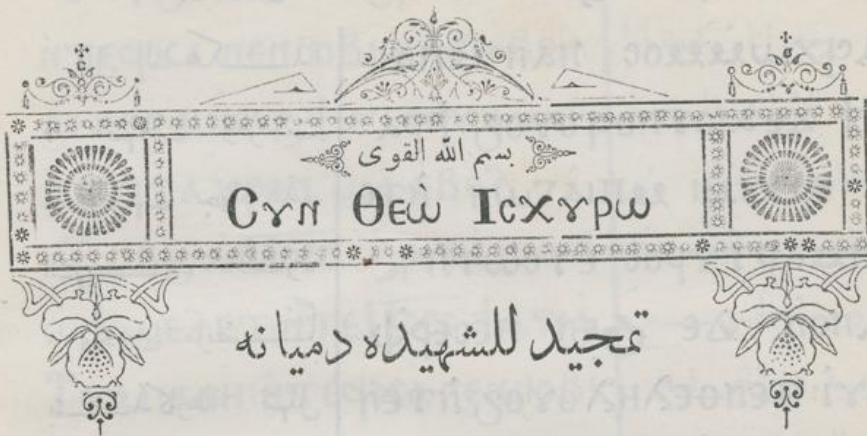 بسم الله القوى
Ⲥⲩⲛ Ⲑⲉⲱ̀ Ⲓⲥⲭⲩⲣⲱ
تمجيد للشهيده دميانه